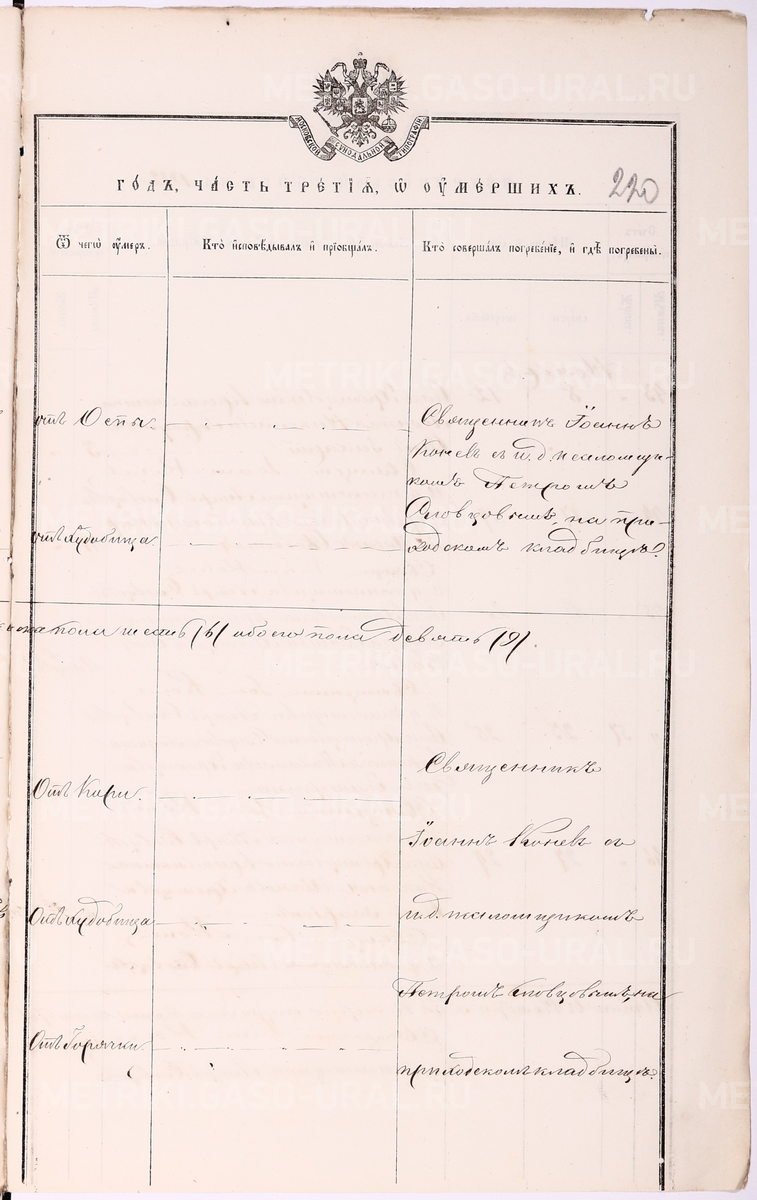 МОСКОВСКОЙ СѴНОДАЛЬНОЙ ТИПОГРАФІИ
ГО́ДЪ, ЧА́СТЬ ТРЕ́ТІѦ, Ѿ ОУМЕ́РШИХЪ.
220
Ѿ чегѡ̀ оу́меръ.
Кто̀ и҆сповѣ́дывалъ и҆ прїобща́лъ.
Кто̀ соверша́лъ погребе́нїе, и҆ гдѣ̀ погребены̀.
отъ Оспы.
Священникъ Іоаннъ
Коневъ съ и. д. псаломщи-
комъ Петромъ
Словцовымъ, на при-
отъ худобища
ходскомъ кладбищѣ.
пола шесть (6) обоего пола девять (9).
Священникъ
Отъ Кори.
Іоаннъ Коневъ съ
Отъ худобища
и. д. псаломщикомъ
Петромъ Словцовымъ, на
Отъ Горячки
приходскомъ кладбищѣ.
METRIKI.GASO-URAL.RU